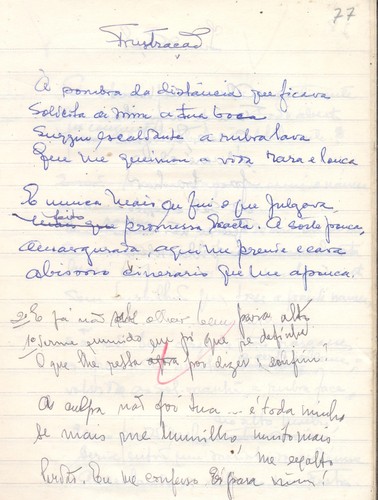 77
Frustração
À sombra da distância que ficava
Solícita de mim a tua boca
Surgiu, escaldante a rubra lava
Que me queimou a vida rara e louca
E nunca mais eu fui o que julgava,
feito
mais que promessa Exacta. A sorte pouca,
Amargurada, aqui me prende e cava
abissovo itinerário que me apouca.
2º E já não sabe olhar bem para alto
1º verme imundo em pó que se definha
O que lhe resta agora por dizer, enfim!
A culpa não foi tua... é toda minha
Se mais me humilho muito mais
me exalto
Perdão. Eu me confesso. É para mim!